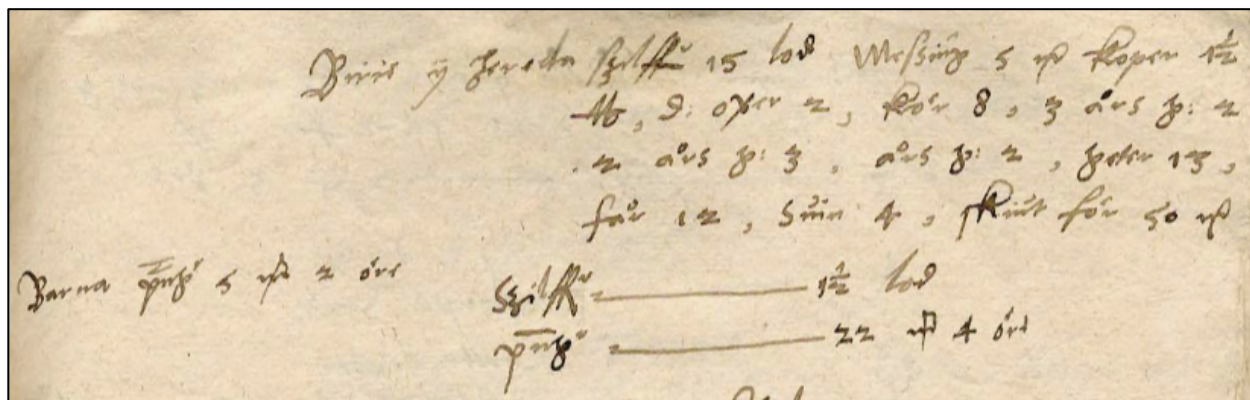 Birie ij hereda Szilffr 15 lod Messing 5 mk Koper 1½
lb, d: oxer 2, Kör 8, 3 års g: 2
2 års g: 3, års g: 2, geter 13,
får 12, Suin 4, skiut för 50 mk
Barna pngr 5 mk 2 öre
Szilffr 1½ lod
pngr 22 mk 4 öre